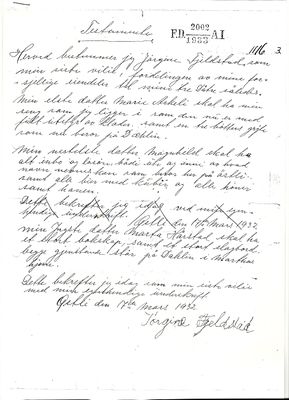 Testamente
2002
F.D. 1933 A I
1116 3.
Herved bestemmer jeg Jørgine Fjeldstad, som
min siste vilje, fordelingen av mine for-
skjellige eiendeler til mine tre døtre således.
Min elste datter Marie skal ha min
seng som jeg ligger i som den nu er med
fullt utstyr av klær, samt en tre
som nu beror på Dæhlin.
Min nestelste datter Magnhild skal ha
alt innbo og løsøre både ute og inne av hvad
navn nevnes kan som beror her på
samt alle
samt hanen.
Dette bekrefter jeg idag ved min egen-
hendige underskrift. den 17de Mars 1932
min yngste datter Marta Harstad skal ha
et stort bokskap, samt et stort slagbord
begge gjenstande står på Dæhlin i Marthas
hjem.
Dette bekrefter jeg idag som min siste vilje
med min egenhendige underskrift.
den 17de Mars 1932
Jørgine Fjeldstad